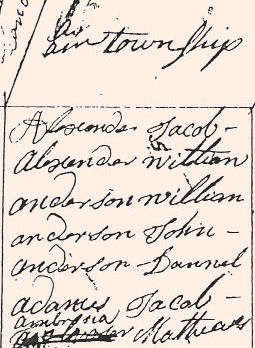 township
Alexander Jacob -
Alexander William
anderson william
anderson John -
anderson Dannel
adames Jacob -
Ambrosia
Mathews